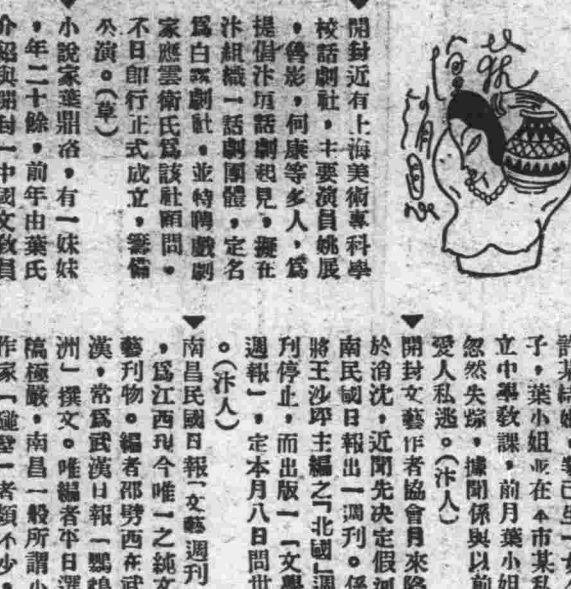 開封近有上海美術專科學
校話劇社，主要演員姚展
，魯影，何康等多人，爲
提倡汴垣話劇起見，擬在
汴組織一話劇團體，定名
爲白劇社，並特聘戲劇
家應雲衛氏爲該社顧問。
不日卽行正式成立，籌備
公演。（草）
▼
小說家葉鼎洛，有一妹妹
，年二十餘，前年由葉氏
介紹與開封一中國文敎員
許某結婚，已生一女公
子，葉小姐並在本市某私
立中學敎課，前月葉小姐
忽然失踪，據聞係與以前
愛人私逃。（汴人）
▼
開封文藝作者協會月來陷
於消沈，近聞先决定假河
南民國日報出一週刊。係
將王沙坪主編之「北國」週
刊停止，而出版一「文學
週報」，定本月八日問世
。（汴人）
▼
南昌民國日報「文藝週刊
，爲江西現今唯一之純文
藝刊物。編者邵劈西在武
漢，常爲武漢日報「鸚鵡
洲」撰文。唯編者平日選
稿極嚴，南昌一般所謂小
作家「碰壁」者頗不少。